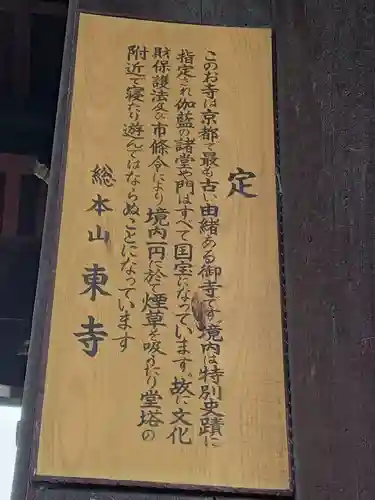 定
このお寺は京都で最も古い由緒ある御寺です境内は特別史蹟に
指定され伽藍の諸堂や門はすべて国宝になっています。故に文化
財保護法及び市條令により境内一円に於て煙草を吸ったり堂塔の
附近で寝たり遊んではならぬことになっています
総本山 東寺